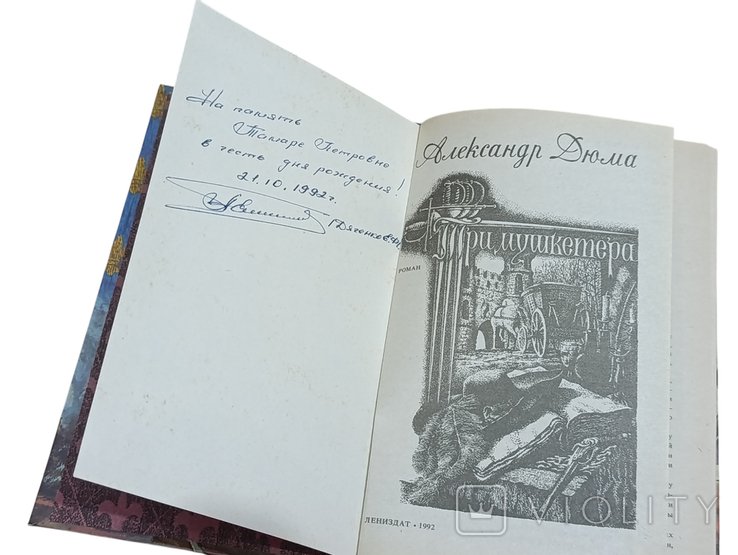 На память
Тамаре Петровне
в честь дня рождения!
21.10.1992 г.
Александр Дюма
Три мушкетера
РОМАН
ЛЕНИЗДАТ • 1992
VIOLITY